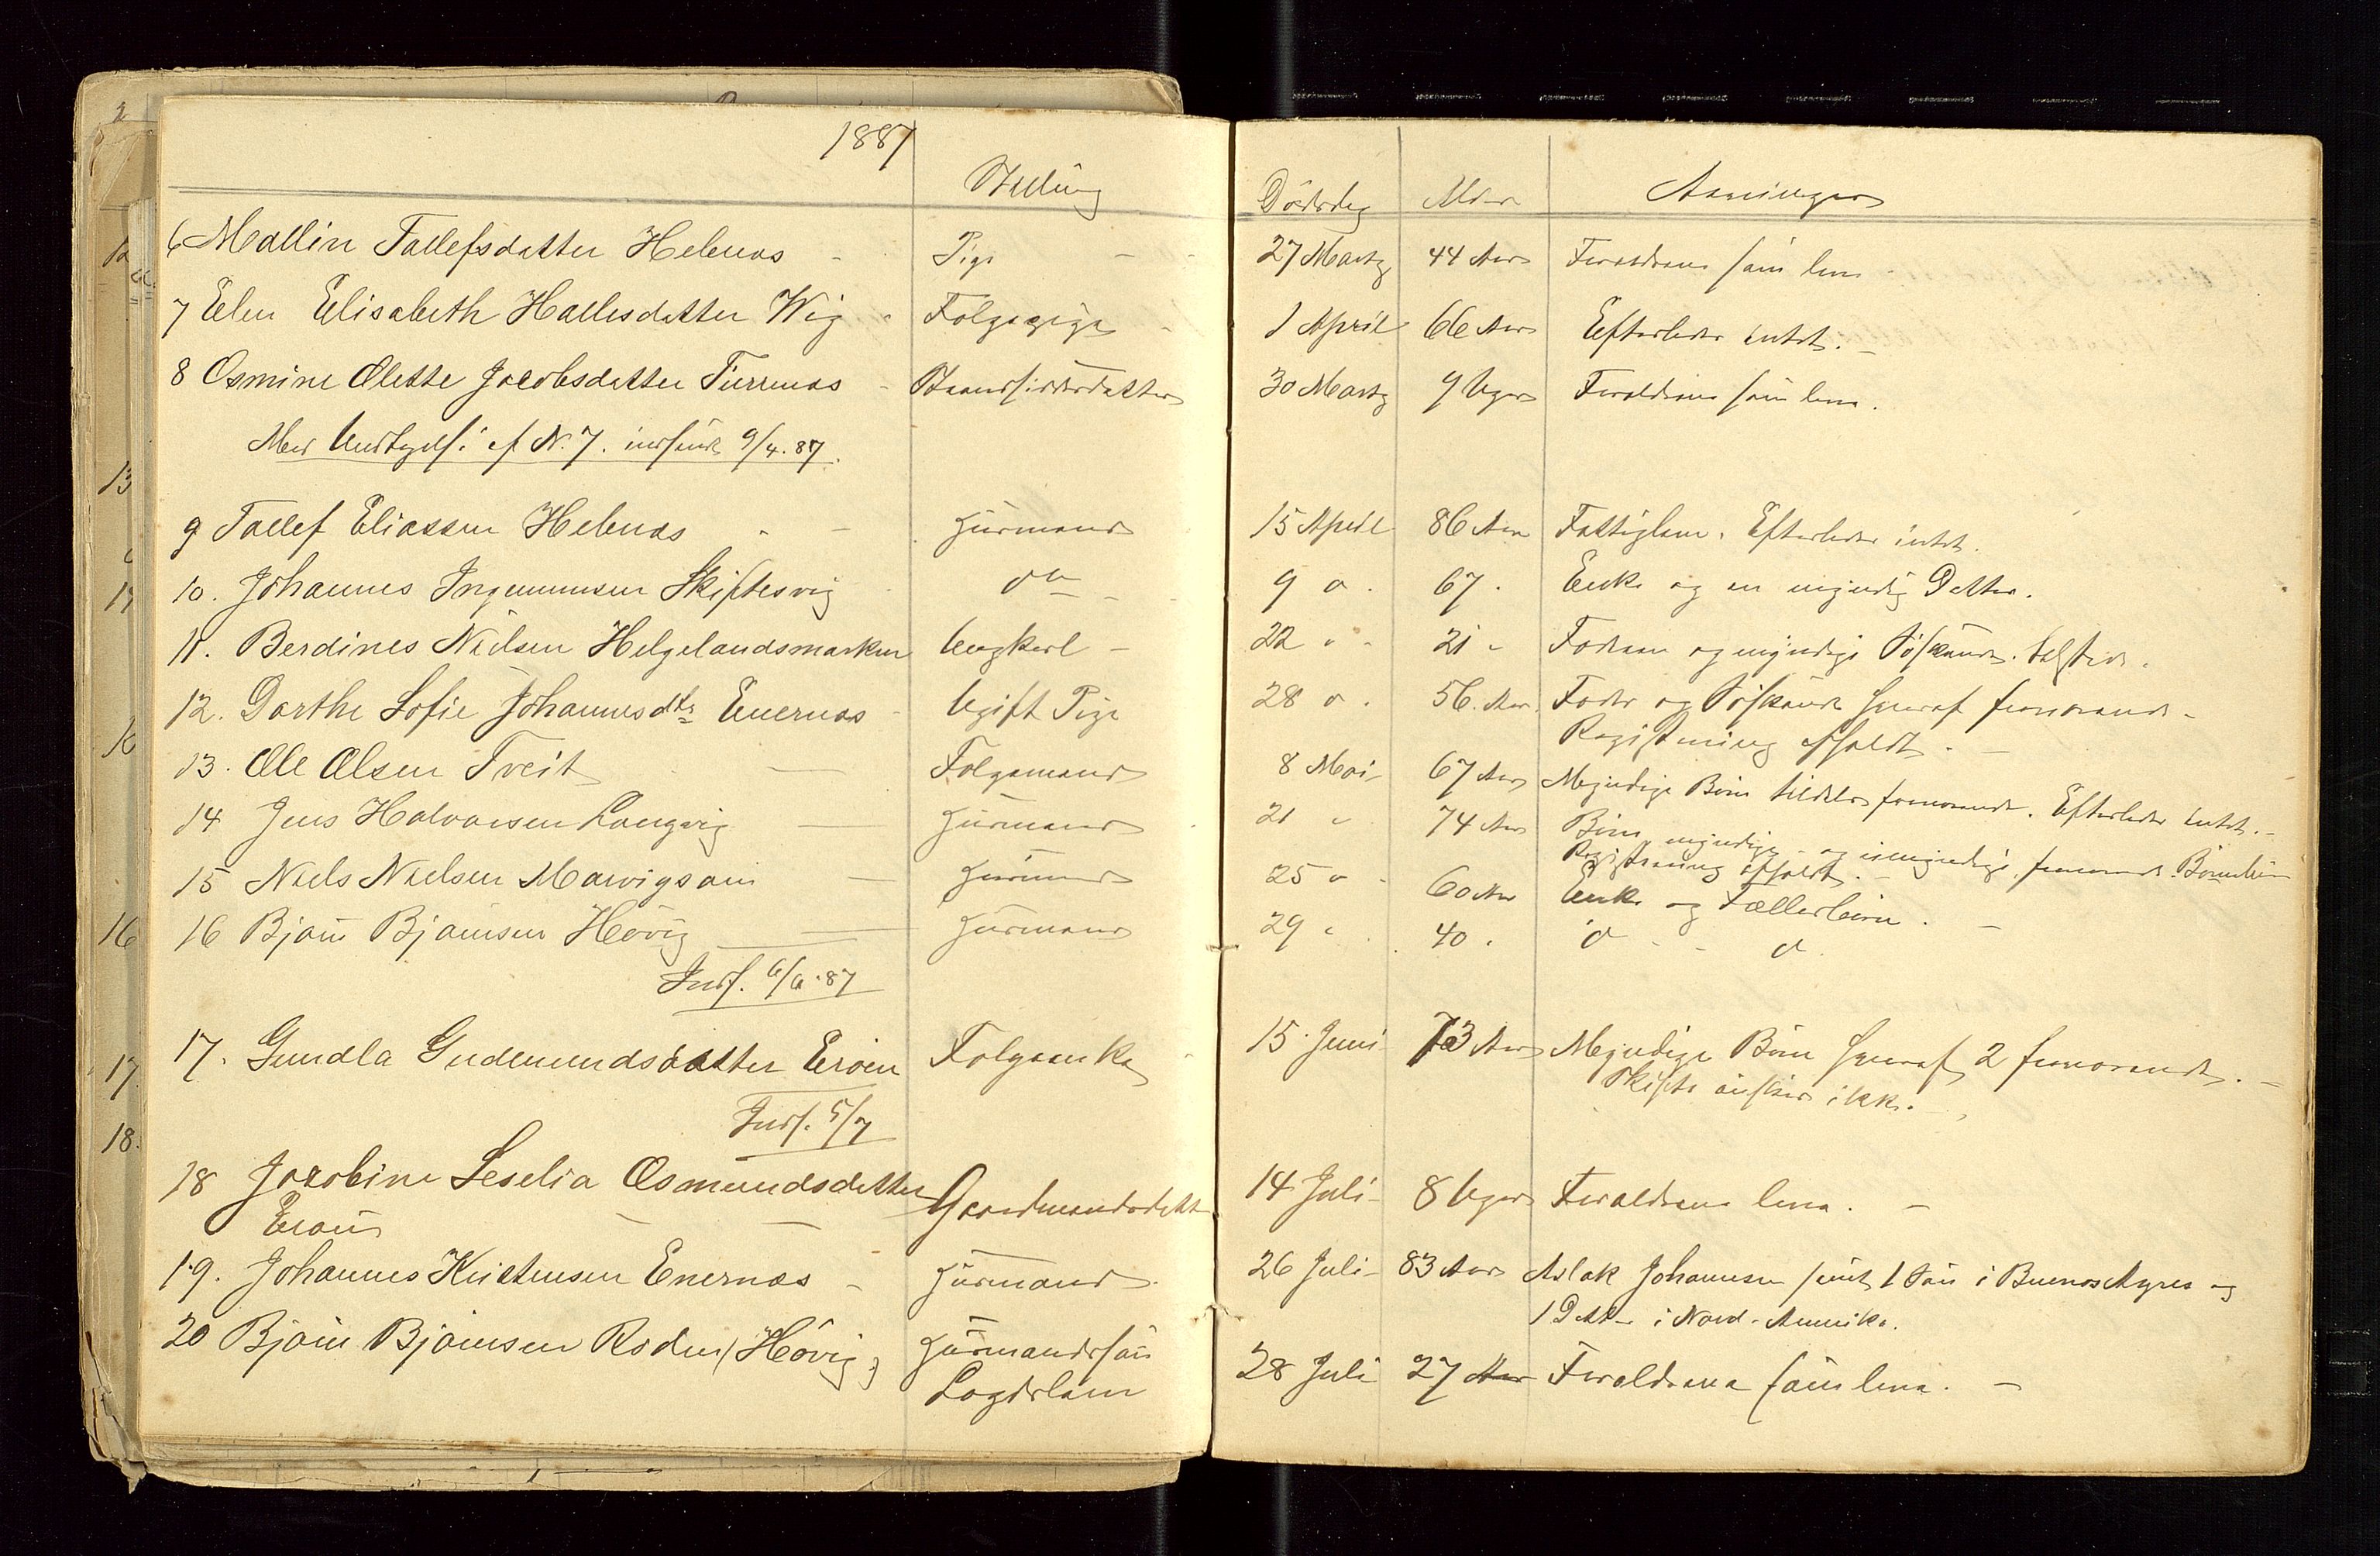 1887
Stilling Dödsdag Alder Arvinger
6 Mallin Tallefsdatter Helenæs - Pige 27 Martz 44 Aar Forældrene
7 Elen Elisabeth Hallesdatter Wig Følgepige 1 April 66 Aar Efterlader intet. -
8 Osmine Olette Jacobsdatter Furrenæs - Strandsidderdatter 30 Martz 9 Uger Forældrene
Med Underretn. af N. 7. indsendt 9/4. 87.
9 Tallef Eliassen Helenæs Husmand 15 April 86 Aar Fattiglem. Efterlader intet.
10. Johannes Ingemunsen Skiftesvig do 9 " 67. Enke og en myndig Datter.
11. Berdines Nielsen Helgelandsmarken Ungkarl - 22 " 21 " Fader og myndige Søskende.
12. Dorthe Sofie Johannesdtr Enernæs Ugift Pige 28 " 56. Aar Fader og Søskende hvoraf fraværende -
Registrering afholdt. -
13. Ole Olsen Tveit Følgemand 8 Mai 67 Aar Myndige Børn tildels fraværende. Efterlader intet. -
14 Jens Halvorsen Langvig Husmand 21 " 74 Aar Børn myndige og umyndige, fraværende.
Registrering afholdt. -
15 Niels Nielsen Marvigsøen Husmand 25 " 60 Aar Enke og Fællesbörn. -
16 Bjørn Bjørnsen Høvig Husmand 29 " 40. d - - d
Inds. 6/6.87
17. Gundla Gudmundsdatter Erøen Følgeenke 15 Juni 73 Aar Myndige Børn hvoraf 2 fraværende. -
Skifte ønskes ikke.
Inds. 5/7
18 Jacobine Seselia Osmundsdatter Gaardmandsdatt 14 Juli - 8 Uger Forældrene leve. -
Erøen
19. Johannes Kristensen Enernæs - Husmand 26 Juli - 83 Aar Aslak Johannesen samt 1 Søn i Buenos Ayres og
1 Datter i Nord-Amerika.
20 Bjørn Bjørnsen Røden (Høvig) Husmandssøn 28 Juli 27 Aar Forældrene
Lægdslem